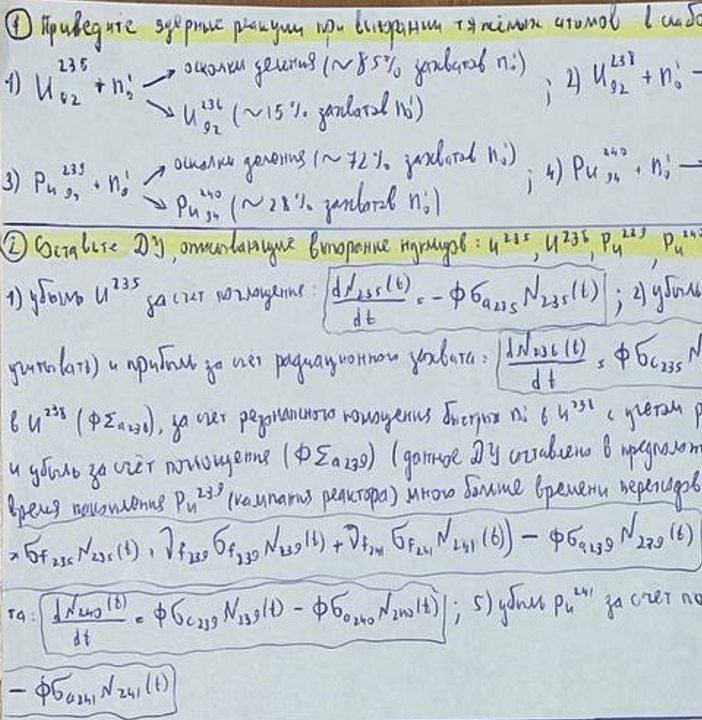 ① Приведите ядерные реакции при выгорании тяжёлых атомов в слабо
1) U₉₂²³⁵ + n₀¹ → осколки деления (~85% захватов n₀¹)
↘ U₉₂²³⁶ (~15% захватов n₀¹) ; 2) U₉₂²³⁸ + n₀¹ →
3) Pu₉₄²³⁹ + n₀¹ → осколки деления (~72% захватов n₀¹)
↘ Pu₉₄²⁴⁰ (~28% захватов n₀¹) ; 4) Pu₉₄²⁴⁰ + n₀¹ →
② Составьте ДУ, описывающие выгорание нуклидов: U²³⁵, U²³⁶, Pu²³⁹, Pu²⁴⁰
1) убыль U²³⁵ за счёт поглощения: dN₂₃₅(t)/dt = −Фσa₂₃₅N₂₃₅(t) ; 2) убыль
учитывать) и прибыль за счёт радиационного захвата: dN₂₃₆(t)/dt = Фσc₂₃₅N
в U²³⁸ (ФΣa₂₃₈), за счёт резонансного поглощения быстрых n₀¹ в U²³⁸ с учётом р
и убыль за счёт поглощения (ФΣa₂₃₉) (данное ДУ составлено в предполож
время накопления Pu²³⁹ (кампания реактора) много больше времени переходов
×σf₂₃₅N₂₃₅(t) + νf₂₃₉σf₂₃₉N₂₃₉(t) + νf₂₄₁σf₂₄₁N₂₄₁(t)) − Фσa₂₃₉N₂₃₉(t)
та: dN₂₄₀(t)/dt = Фσc₂₃₉N₂₃₉(t) − Фσa₂₄₀N₂₄₀(t) ; 5) убыль Pu²⁴¹ за счёт по
− Фσa₂₄₁N₂₄₁(t)